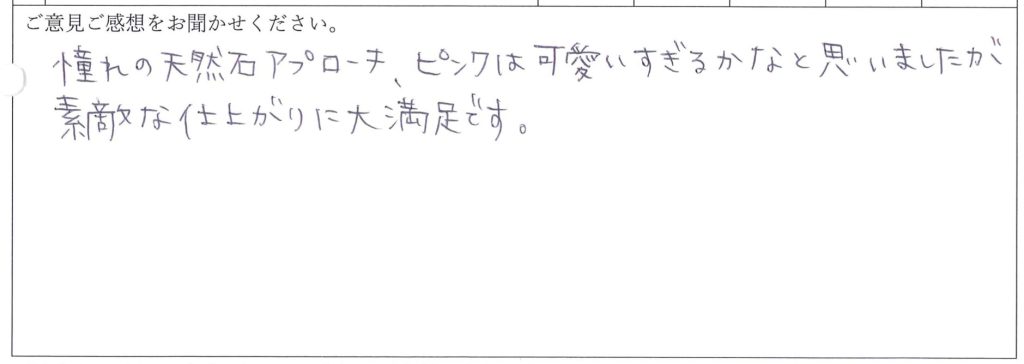 ご意見ご感想をお聞かせください。
憧れの天然石アプローチ、ピンクは可愛いすぎるかなと思いましたが
素敵な仕上がりに大満足です。